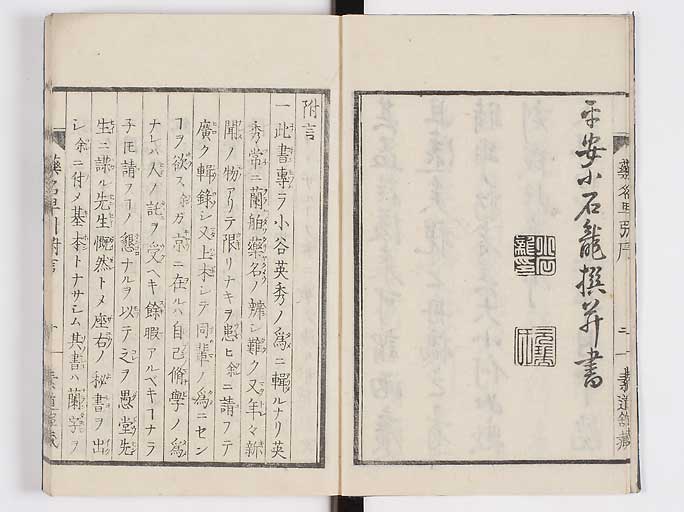 平安小石龍撰并書
附言
一此書專ラ小谷英秀ノ爲ニ輯ルナリ英
秀常ニ蘭舶藥名ノ辨シ難ク又年々新
聞ノ物アリテ限リナキヲ患ヒ余ニ請フテ
廣ク輯錄シ又上木シテ同輩ノ爲ニセン
ヿヲ欲ス余ガ京ニ在ルハ自己脩學ノ爲
ナレハ人ノ託ヲ受ヘキ餘暇アルベキヿナラ
子𪜈請フヿノ懇ナルヲ以テ之ヲ愚堂先
生ニ謀ル先生慨然トメ座右ノ秘書ヲ出
シ余ニ付メ基本トナサシム其書ハ蘭字ヲ
藥名早引附言